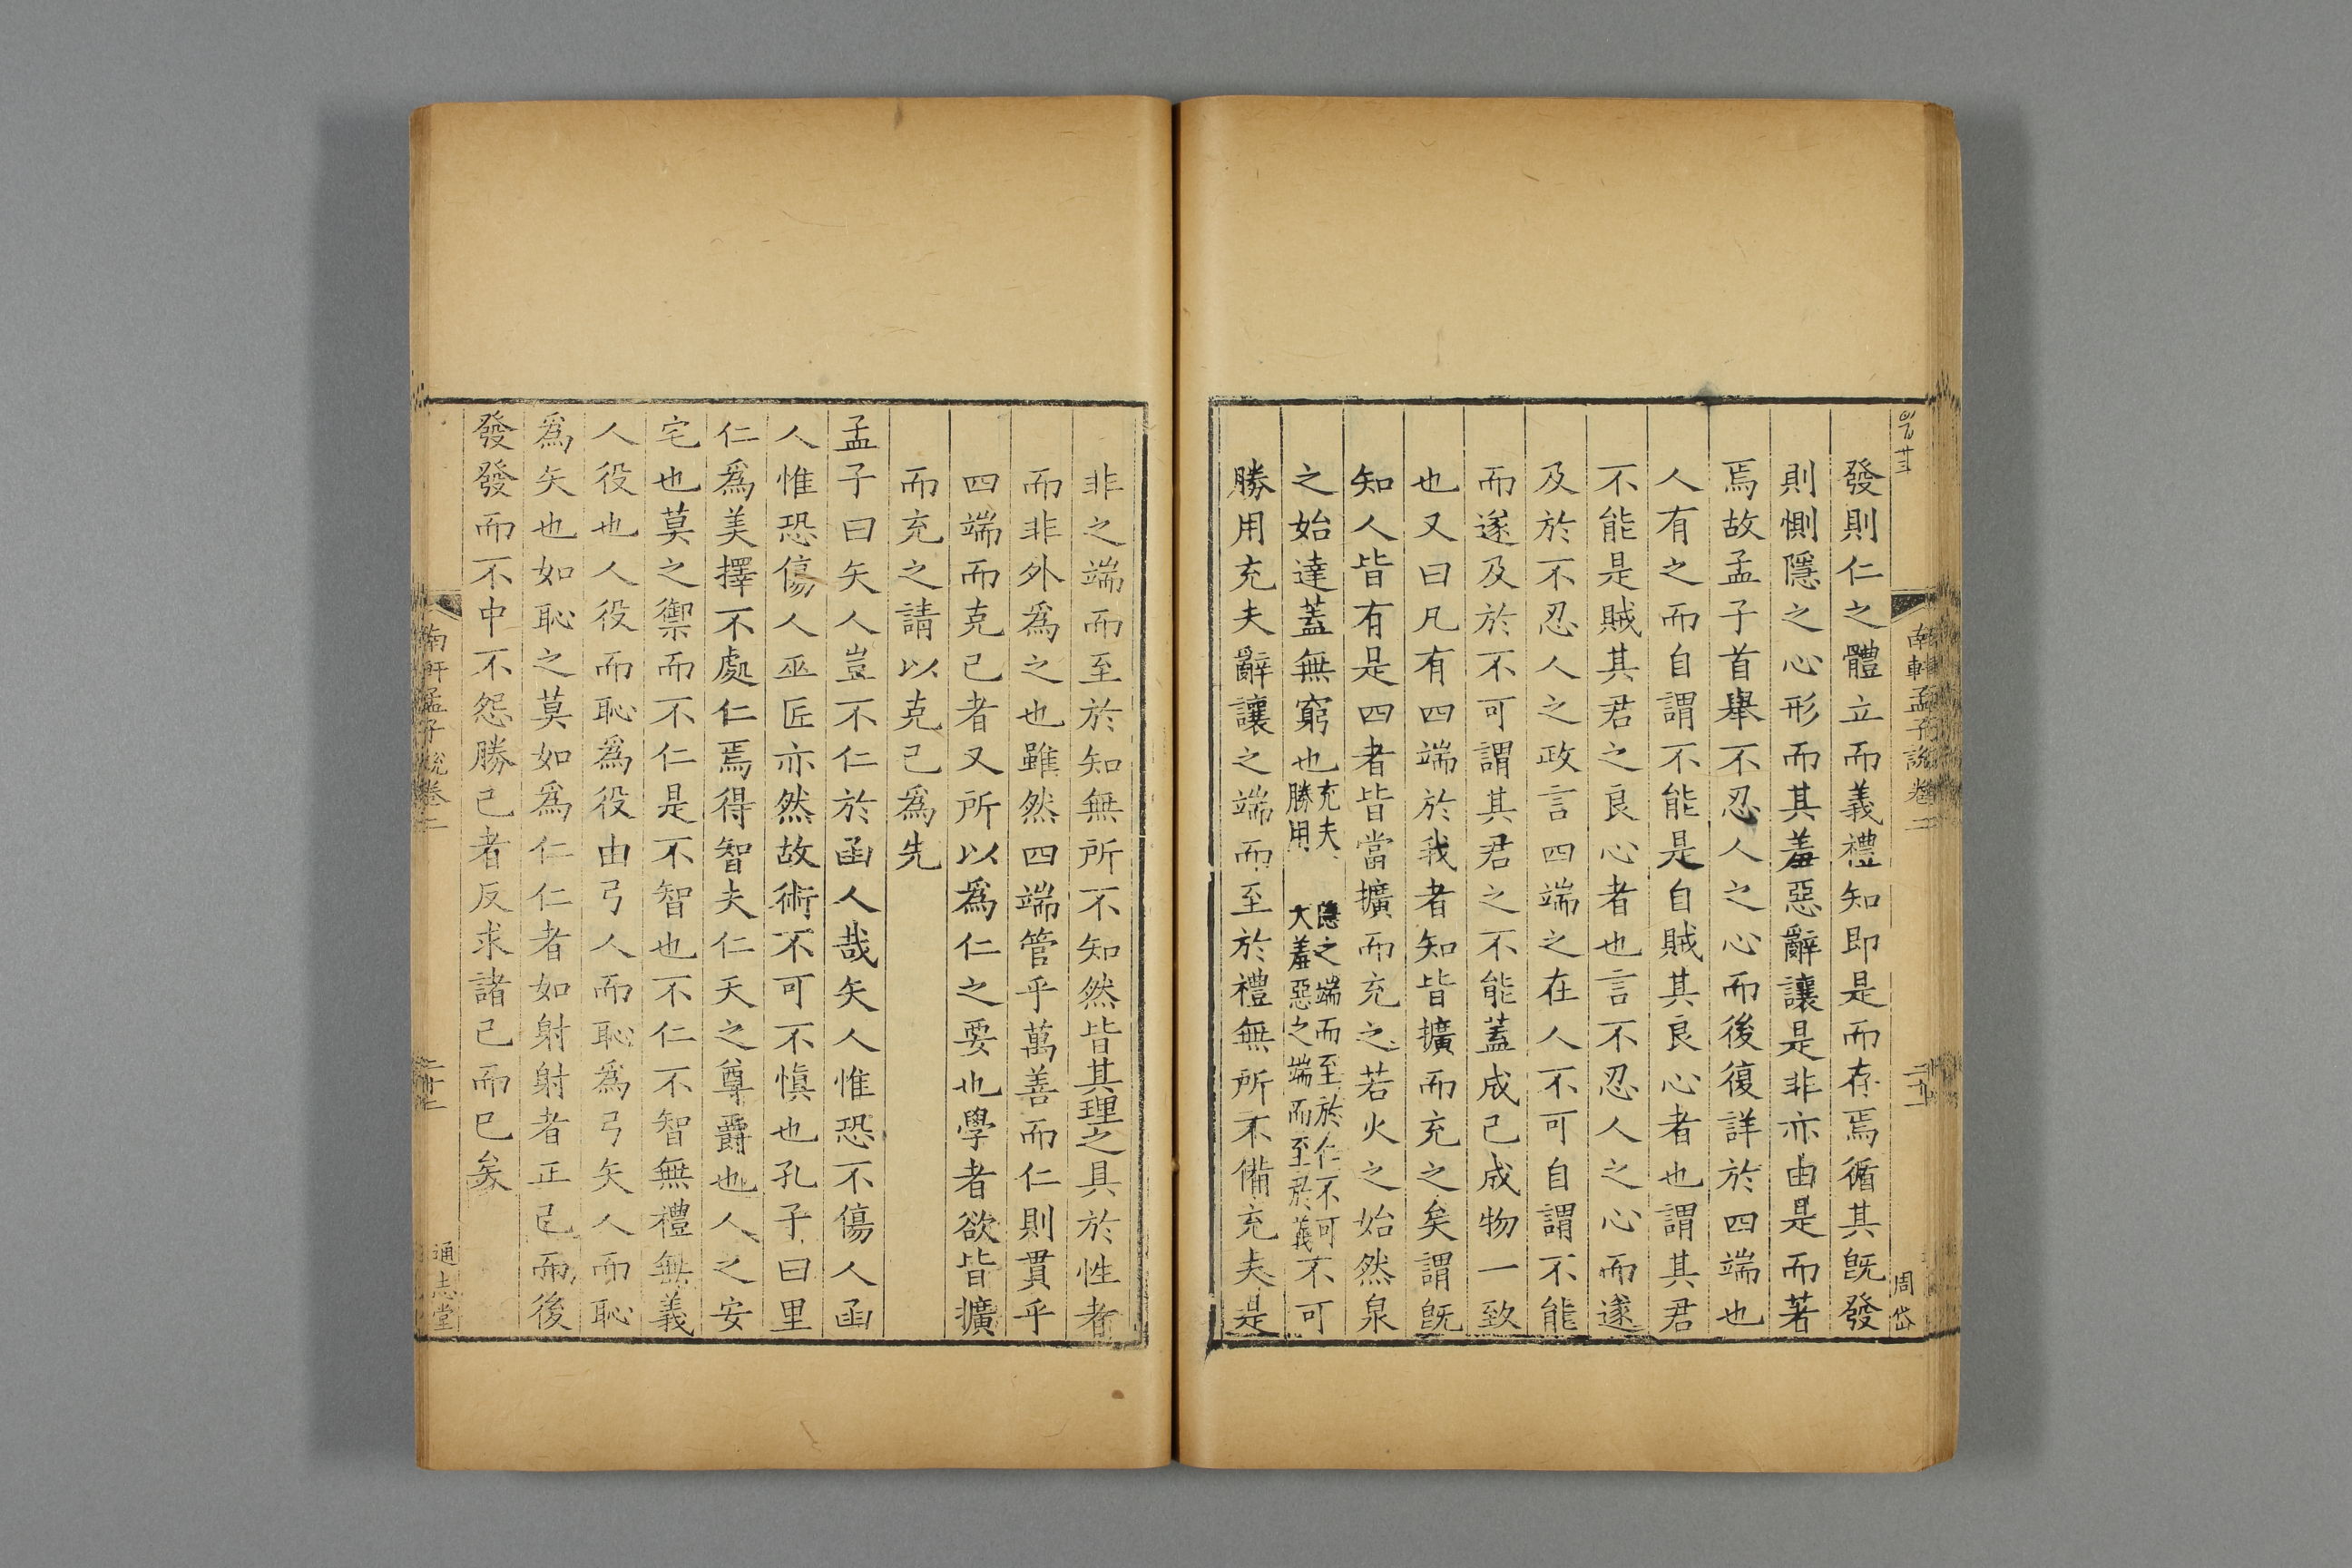 南軒孟子說卷二
周岱
發則仁之體立而義禮知即是而存焉循其旣發
則惻隱之心形而其羞惡辭讓是非亦由是而著
焉故孟子首舉不忍人之心而後復詳於四端也
人有之而自謂不能是自賊其良心者也謂其君
不能是賊其君之良心者也言不忍人之心而遂
及於不忍人之政言四端之在人不可自謂不能
而遂及於不可謂其君之不能蓋成己成物一致
也又曰凡有四端於我者知皆擴而充之矣謂旣
知人皆有是四者皆當擴而充之若火之始然泉
之始達蓋無窮也充夫 隱之端而至於仁不可勝用 大羞惡之端而至於義不可
勝用充夫辭讓之端而至於禮無所不備充夫是
非之端而至於知無所不知然皆其理之具於性者
而非外爲之也雖然四端管乎萬善而仁則貫乎
四端而克己者又所以爲仁之要也學者欲皆擴
而充之請以克己爲先
孟子曰矢人豈不仁於函人哉矢人惟恐不傷人函
人惟恐傷人巫匠亦然故術不可不愼也孔子曰里
仁爲美擇不處仁焉得智夫仁天之尊爵也人之安
宅也莫之禦而不仁是不智也不仁不智無禮無義
人役也人役而恥爲役由弓人而恥爲弓矢人而恥
爲矢也如恥之莫如爲仁仁者如射射者正己而後
發發而不中不怨勝己者反求諸己而已矣
南軒孟子說卷二
通志堂